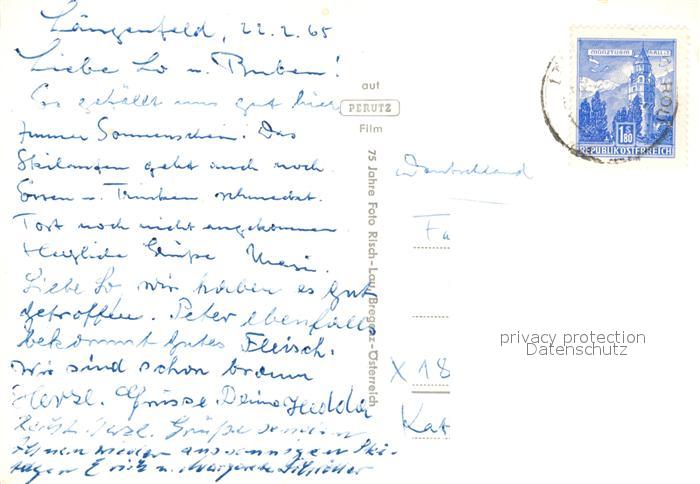 Längenfeld, 22.2.65
Liebe Lo u. Buben!
Es gefällt uns gut hier
Immer Sonnenschein. Das
Skilaufen geht auch noch
Essen u. Trinken schmeckt.
Post noch nicht angekommen
Herzliche Grüße
Liebe Lo, wir haben es gut
getroffen. Peter ebenfalls
bekommt gutes Fleisch.
Wir sind schon braun
Herzl. Grüsse Deine Hedda
herzl. Grüße senden
Ihnen wieder aus sonnigen Ski-
tagen Erich u. Margarete
auf
PERUTZ
Film
75 Jahre Foto Risch-Lau, Bregenz-Österreich
MÜNZTURM HALL i.T.
S 1.80
REPUBLIK ÖSTERREICH
Deutschland
Fa
X 18
Kat
privacy protection
Datenschutz